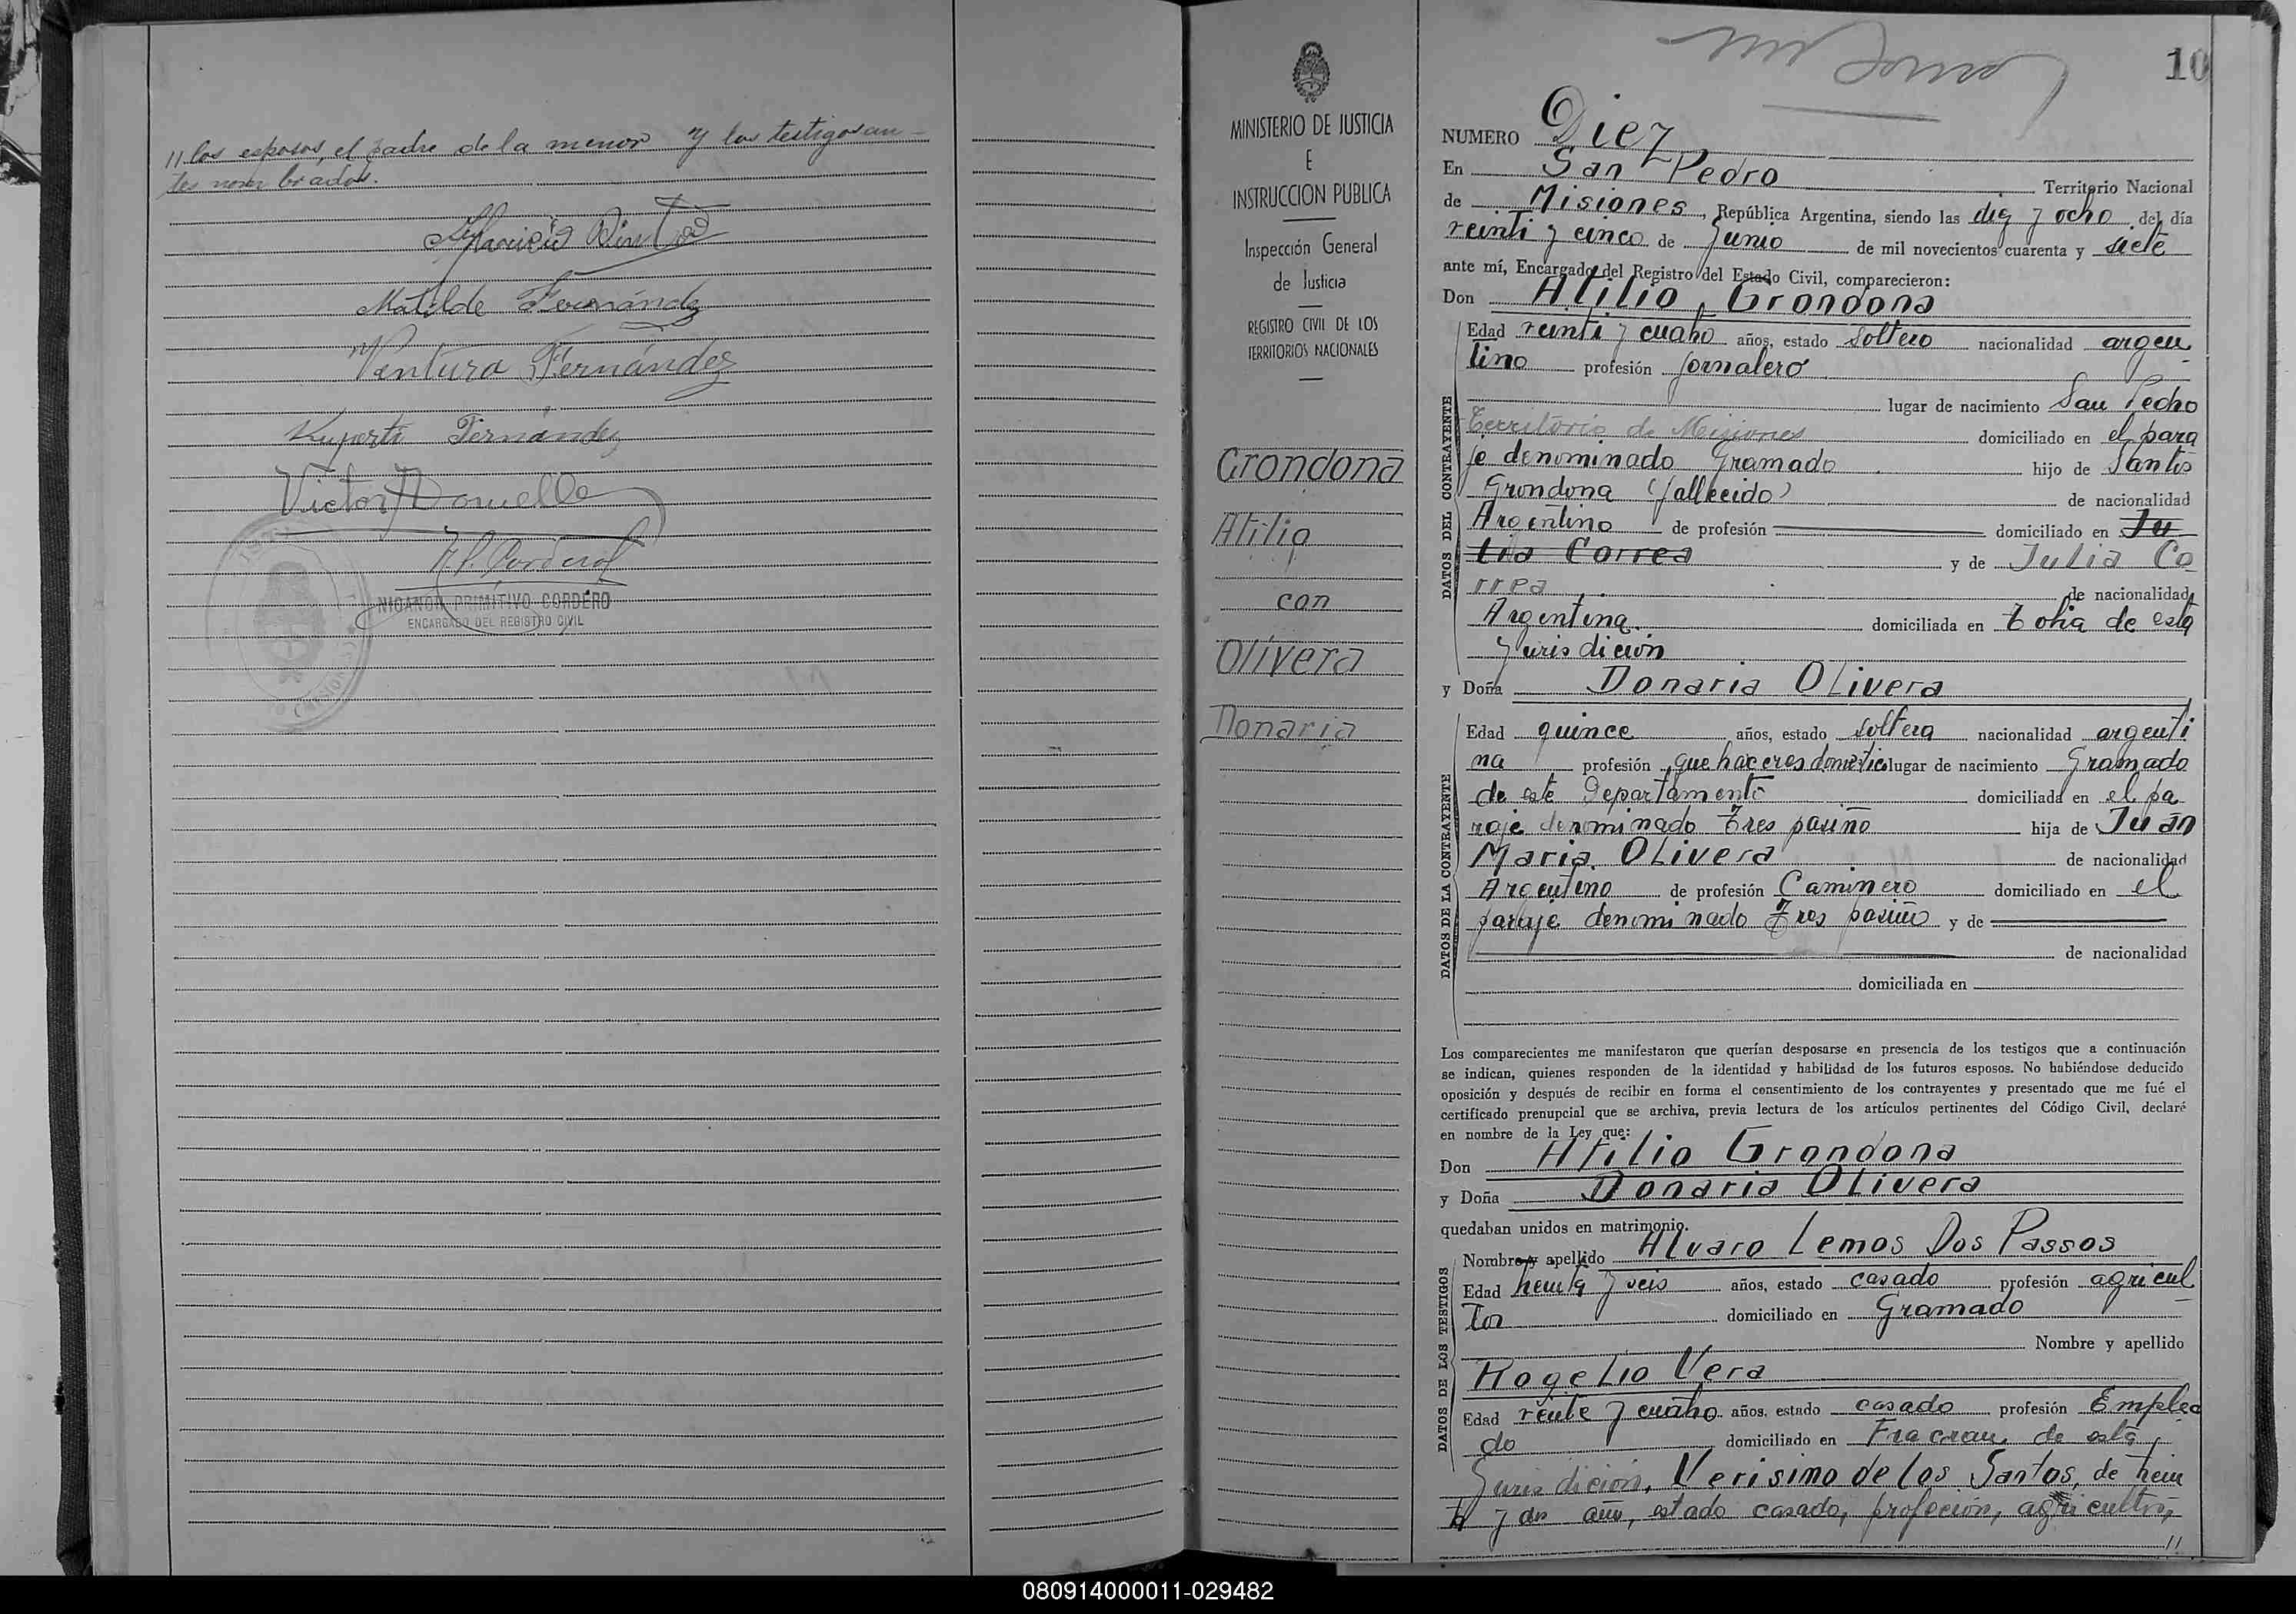 // los esposos, el padre de la menor y los testigos an-
tes nombrados.
Matilde Fernández
Ventura Fernández
Ruperto Fernández
NICANOR PRIMITIVO CORDERO
ENCARGADO DEL REGISTRO CIVIL
MINISTERIO DE JUSTICIA
E
INSTRUCCION PUBLICA
Inspección General
de Justicia
REGISTRO CIVIL DE LOS
TERRITORIOS NACIONALES
Grondona
Atilio
con
Olivera
Donaria
10
NUMERO Diez
En San Pedro Territorio Nacional
de Misiones, República Argentina, siendo las diez y ocho del día
veinti y cinco de Junio de mil novecientos cuarenta y siete
ante mí, Encargado del Registro del Estado Civil, comparecieron:
Don Atilio Grondona
DATOS DEL CONTRAYENTE
Edad veinti y cuatro años, estado soltero nacionalidad argen
tino profesión jornalero
lugar de nacimiento San Pedro
Territorio de Misiones domiciliado en el para
je denominado Gramado hijo de Santos
Grondona (fallecido) de nacionalidad
Argentino de profesión domiciliado en Ju
lia Correa y de Julia Co
rrea de nacionalidad
Argentina domiciliada en Tobia de esta
Jurisdición
y Doña Donaria Olivera
DATOS DE LA CONTRAYENTE
Edad quince años, estado soltera nacionalidad argenti
na profesión quehaceres domestico lugar de nacimiento Gramado
de este Departamento domiciliada en el pa
raje denominado Tres pasiño hija de Juán
Maria Olivera de nacionalidad
Argentino de profesión Caminero domiciliado en el
paraje denominado Tres pasiño y de
de nacionalidad
domiciliada en
Los comparecientes me manifestaron que querían desposarse en presencia de los testigos que a continuación
se indican, quienes responden de la identidad y habilidad de los futuros esposos. No habiéndose deducido
oposición y después de recibir en forma el consentimiento de los contrayentes y presentado que me fué el
certificado prenupcial que se archiva, previa lectura de los artículos pertinentes del Código Civil, declaré
en nombre de la Ley que:
Don Atilio Grondona
y Doña Donaria Olivera
quedaban unidos en matrimonio.
DATOS DE LOS TESTIGOS
Nombre y apellido Alvaro Lemos Dos Passos
Edad treinta y seis años, estado casado profesión agricul
tor domiciliado en Gramado
Nombre y apellido
Rogelio Vera
Edad veinte y cuatro años, estado casado profesión Emplea
do domiciliado en Fracran de esta
Jurisdición, Verisimo de los Santos, de trein
ta y dos años, estado casado, profeción, agricultor,
//
080914000011-029482